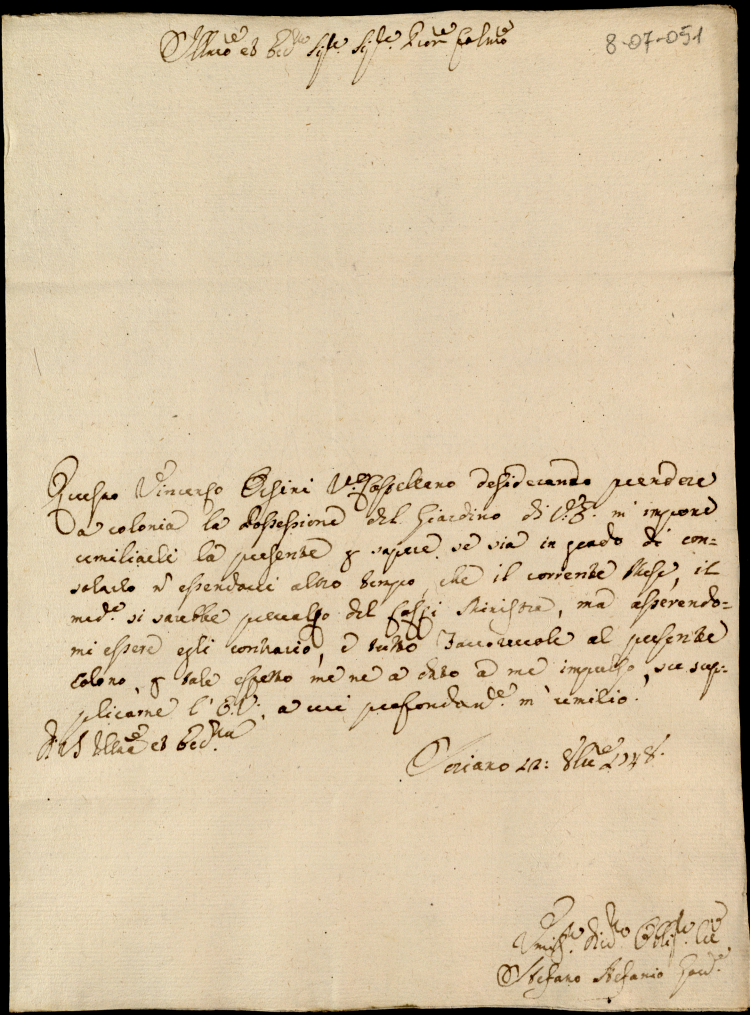 8-07-051
Illmo et Ecc Sig.re Sig.re
Questo Vincenzo Orsini V.o Castellano desiderando prendere
a colonia la Possessione del Giardino di V.E. m'impone
umiliarli la presente p sapere se sia in grado di con=
solarlo n essendoci altro tempo, che il corrente Mese, il
med.o si sarebbe prevalso del Ministro, ma asserendo=
mi essere egli contrario, e tutto favorevole al presente
colono, p tale effetto me ne a dato a me impulso, sup=
plicarne l'E.V., a cui profondam.e m'umilio.
Di V.S. Illma et Ecc.ma
Soriano 22: 8bre 1748.
Umiss.o Obblig.o
Stefano Stefanio